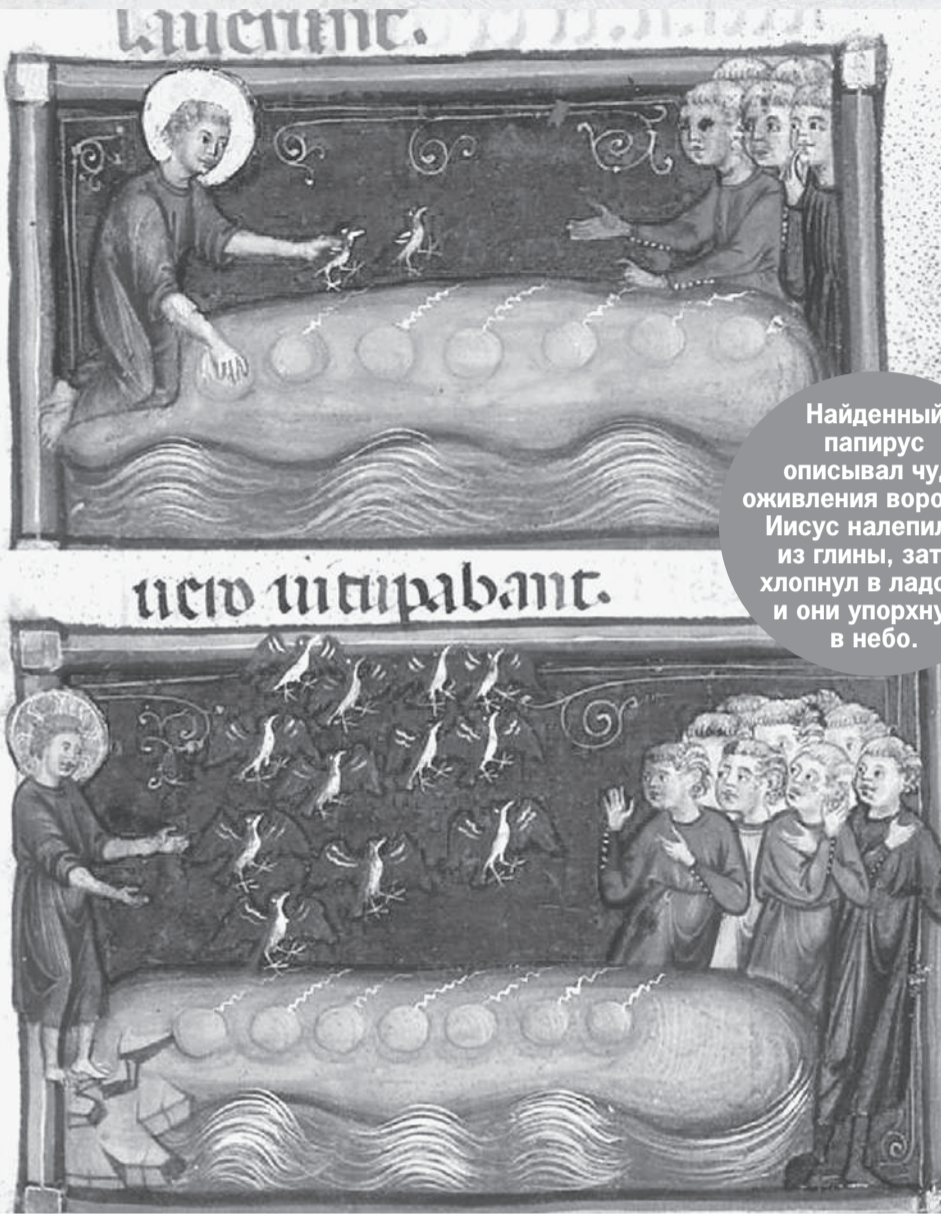 lauerunt.
Найденный
папирус
описывал чу
оживления воро
Иисус налепил
из глины, зат
хлопнул в ладо
и они упорхну
в небо.
uero uitupabant.